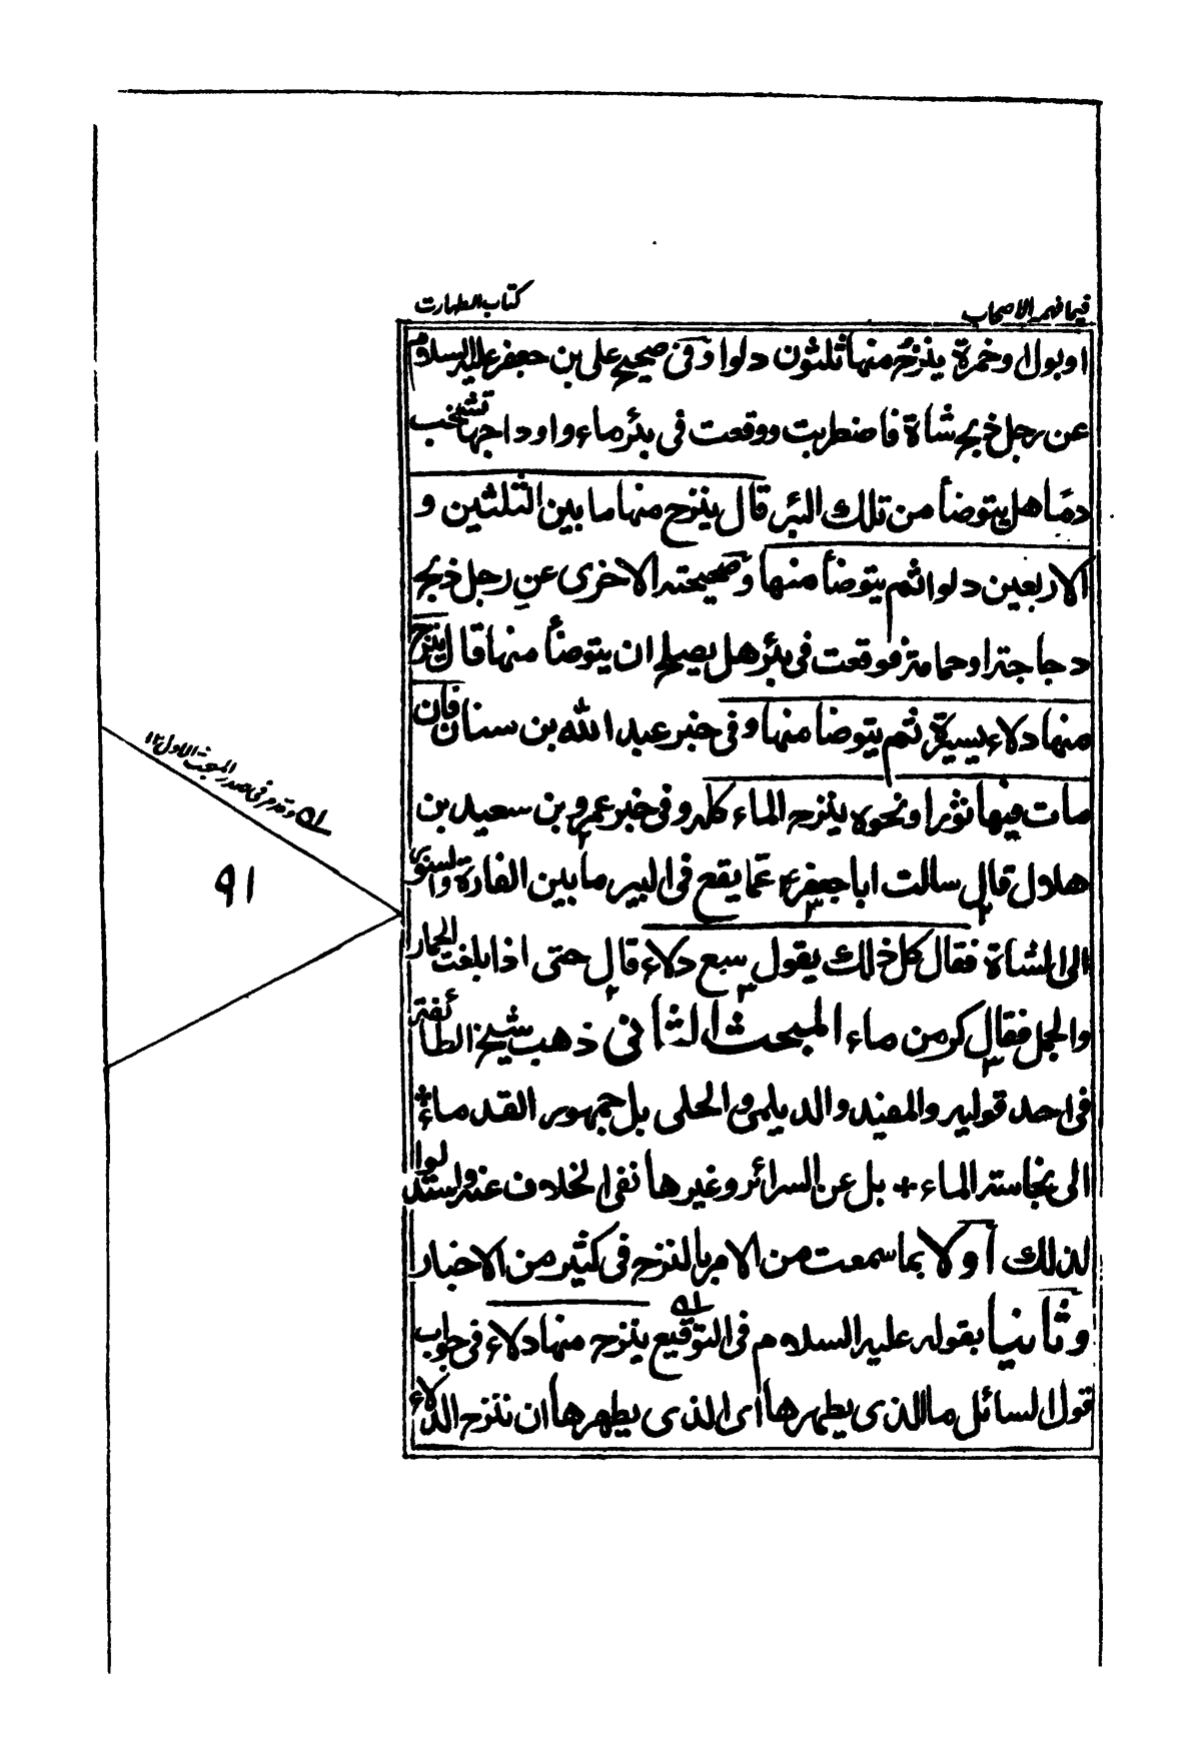 فيما فهمه الاصحاب
كتاب الطهارت
او بول او خمرة ينزح منها ثلثون دلوا وفى صحيح على بن جعفر عليه السلام
عن رجل ذبح شاة فاضطربت ووقعت فى بئر ماء واوداجها تشخب
دمًا هل يتوضأ من تلك البئر قال ينزح منها ما بين الثلثين و
الاربعين دلوا ثم يتوضأ منها وصحيحته الاخرى عن رجل ذبح
دجاجة او حمامة فوقعت فى بئر هل يصلح ان يتوضأ منها قال ينزح
منها دلاء يسيرة ثم يتوضأ منها وفى خبر عبد الله بن سنان فان
مات فيها ثورا ونحوه ينزح الماء كله وفى خبر عمرو بن سعيد بن
هلال قال سالت ابا جعفر ع عما يقع فى البير ما بين الفارة والسنور
الى الشاة فقال كل ذلك يقول سبع دلاء قال حتى اذا بلغت الحمار
والجمل فقال كر من ماء المبحث الثانى ذهب شيخ الطائفة
فى احد قوليه والمفيد والديلمى والحلى بل جمهور القدماء
الى نجاسة الماء + بل عن السرائر وغيرها نفى الخلاف عنه واستدلوا
لذلك اولا بما سمعت من الامر بالنزح فى كثير من الاخبار
وثانيا بقوله عليه السلام فى التوقيع ينزح منها دلاء فى جواب
قول السائل ما الذى يطهرها اى الذى يطهرها ان تنزح الدلاء
وتقدم فى صدر المبحث الاول ١٢
٩١